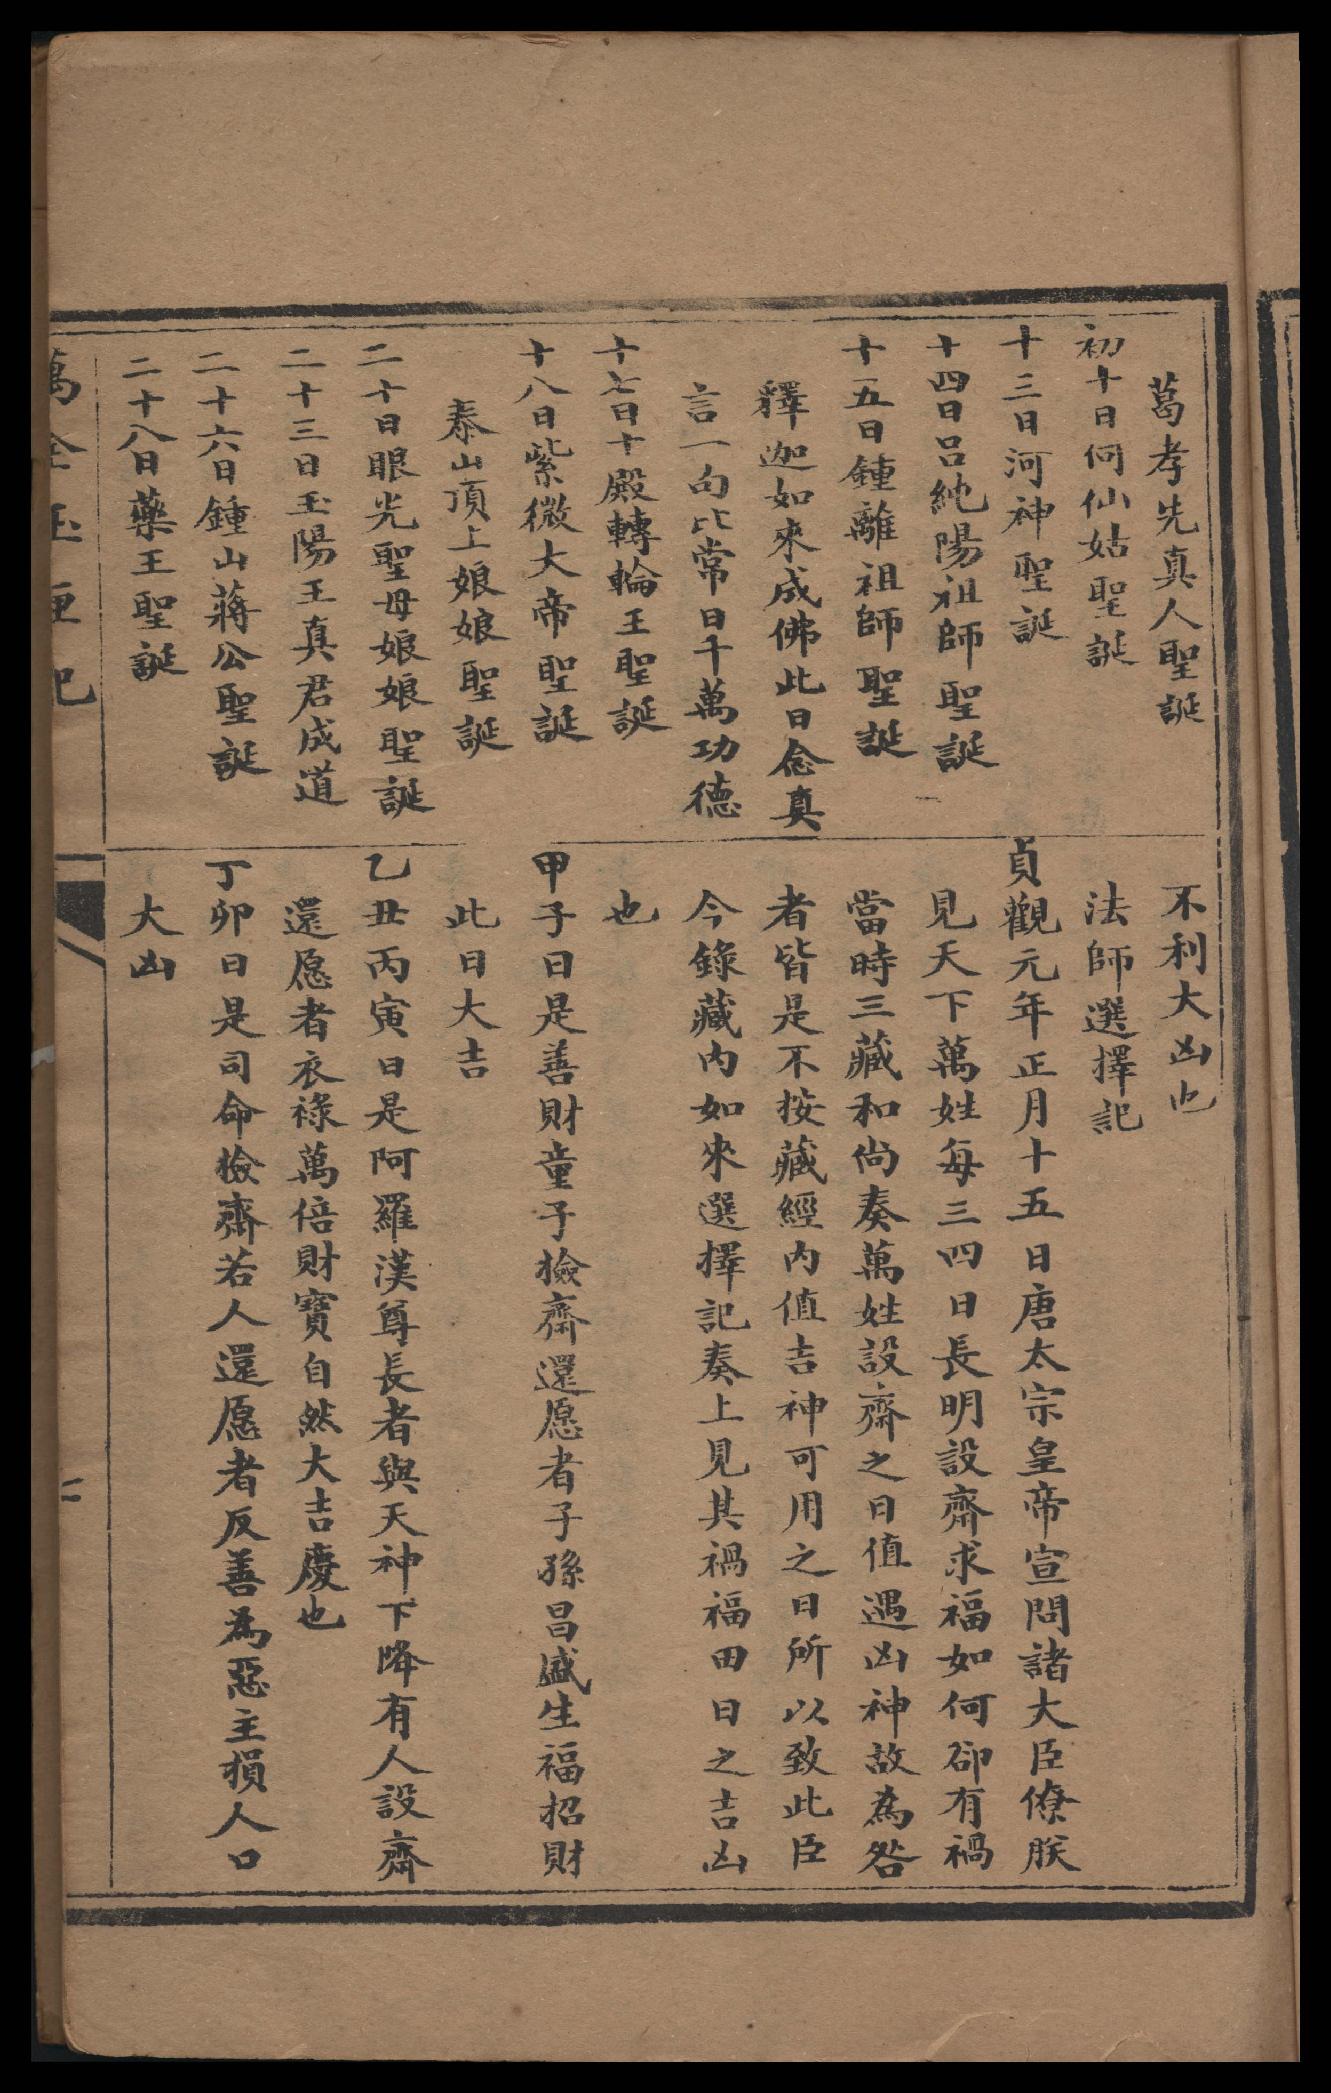 葛孝先真人聖誕
初十日何仙姑聖誕
十三日河神聖誕
十四日呂純陽祖師聖誕
十五日鍾離祖師聖誕
釋迦如來成佛此日念真
言一句比常日千萬功德
十七日十殿轉輪王聖誕
十八日紫微大帝聖誕
泰山頂上娘娘聖誕
二十日眼光聖母娘娘聖誕
二十三日玉陽王真君成道
二十六日鍾山蔣公聖誕
二十八日藥王聖誕
不利大凶也
法師選擇記
貞觀元年正月十五日唐太宗皇帝宣問諸大臣僚朕
見天下萬姓每三四日長明設齋求福如何卻有禍
當時三藏和尚奏萬姓設齋之日值遇凶神故為咎
者皆是不按藏經內值吉神可用之日所以致此臣
今錄藏內如來選擇記奏上見其禍福田日之吉凶
也
甲子日是善財童子檢齋還愿者子孫昌盛生福招財
此日大吉
乙丑丙寅日是阿羅漢尊長者與天神下降有人設齋
還愿者衣祿萬倍財寶自然大吉慶也
丁卯日是司命檢齋若人還愿者反善為惡主損人口
大凶
萬全玉匣記
二